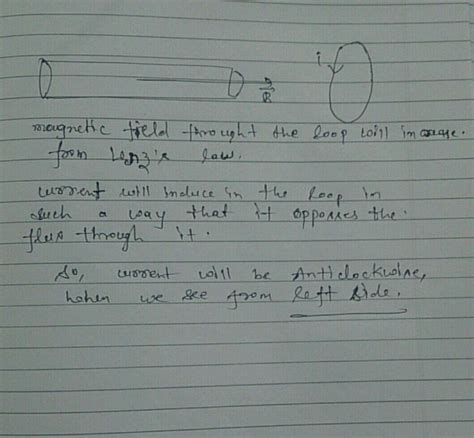 i
B
magnetic field throught the loop will increase.
from Lenz's law.
current will induce in the loop in
such a way that it opposses the.
flux through it.
So, current will be Anticlockwise,
when we see from left side.